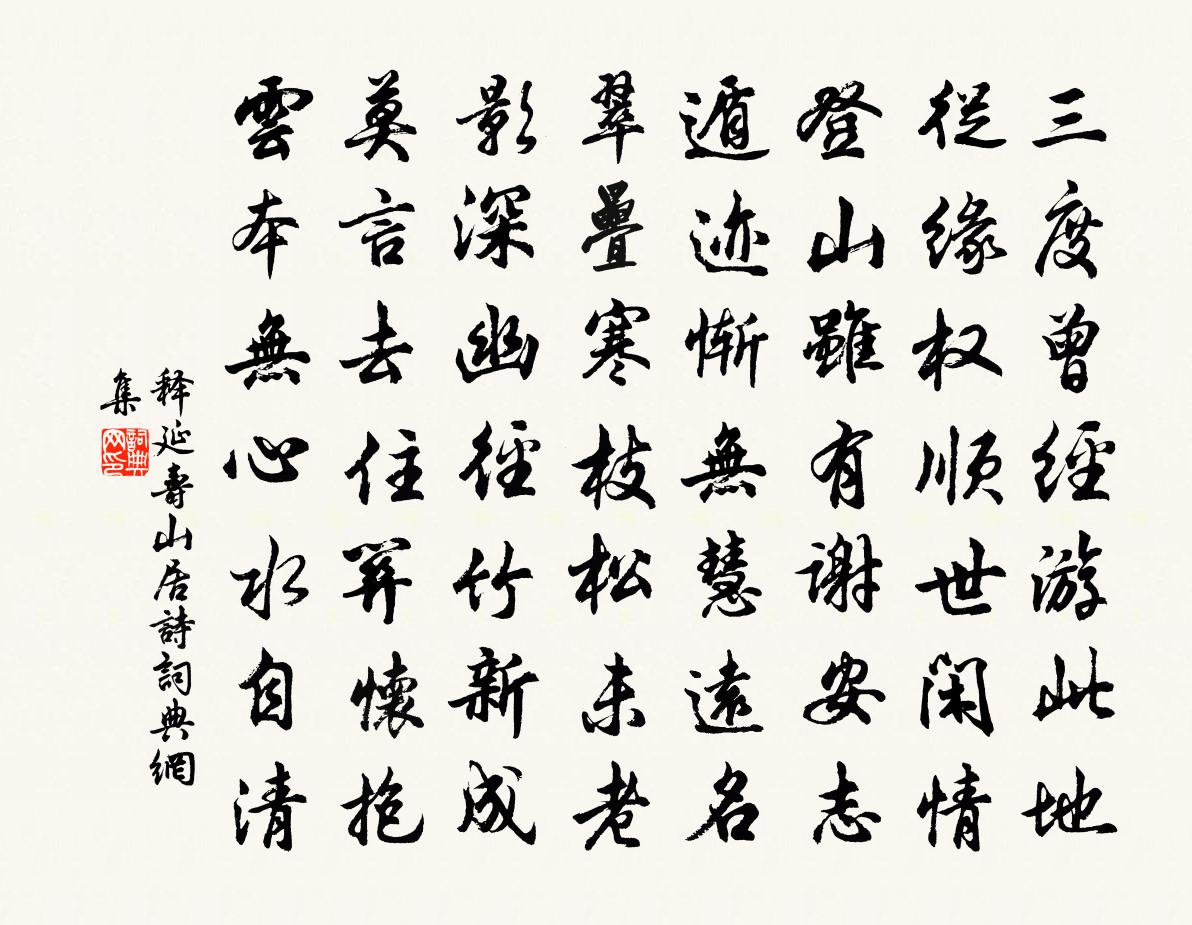 三度曾經游此地
從緣权順世閑情
登山雖有謝安志
遁迹慚無慧遠名
翠疊寒枝松未老
影深幽徑竹新成
莫言去住關懷抱
雲本無心水自清
释延壽山居詩詞典網
集
詞典
网印